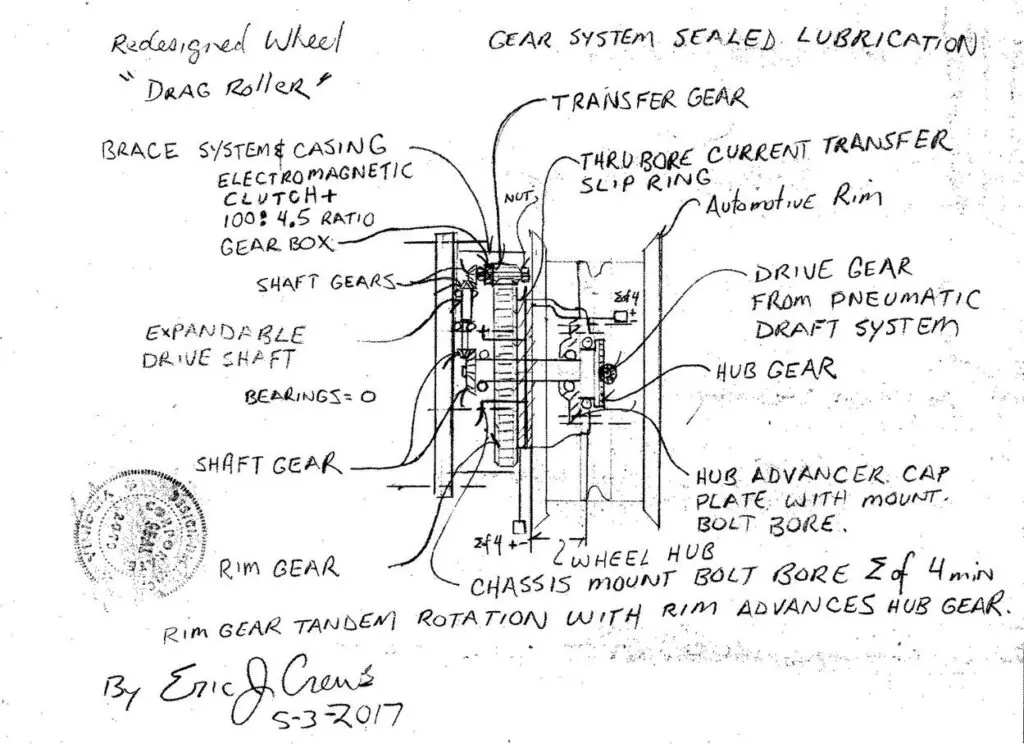 Redesigned Wheel
"Drag Roller"
GEAR SYSTEM SEALED LUBRICATION
TRANSFER GEAR
BRACE SYSTEM & CASING
ELECTROMAGNETIC
CLUTCH +
100:4.5 RATIO
GEAR BOX
THRU BORE CURRENT TRANSFER
SLIP RING
NUT
Automotive Rim
SHAFT GEARS
DRIVE GEAR
FROM PNEUMATIC
DRAFT SYSTEM
Σof4
+
EXPANDABLE
DRIVE SHAFT
HUB GEAR
BEARINGS = O
SHAFT GEAR
HUB ADVANCER CAP
PLATE WITH MOUNT
BOLT BORE.
Σof4 + -
WHEEL HUB
RIM GEAR
CHASSIS MOUNT BOLT BORE Σ of 4 min
RIM GEAR TANDEM ROTATION WITH RIM ADVANCES HUB GEAR.
By Eric J. Crews
5-3-2017